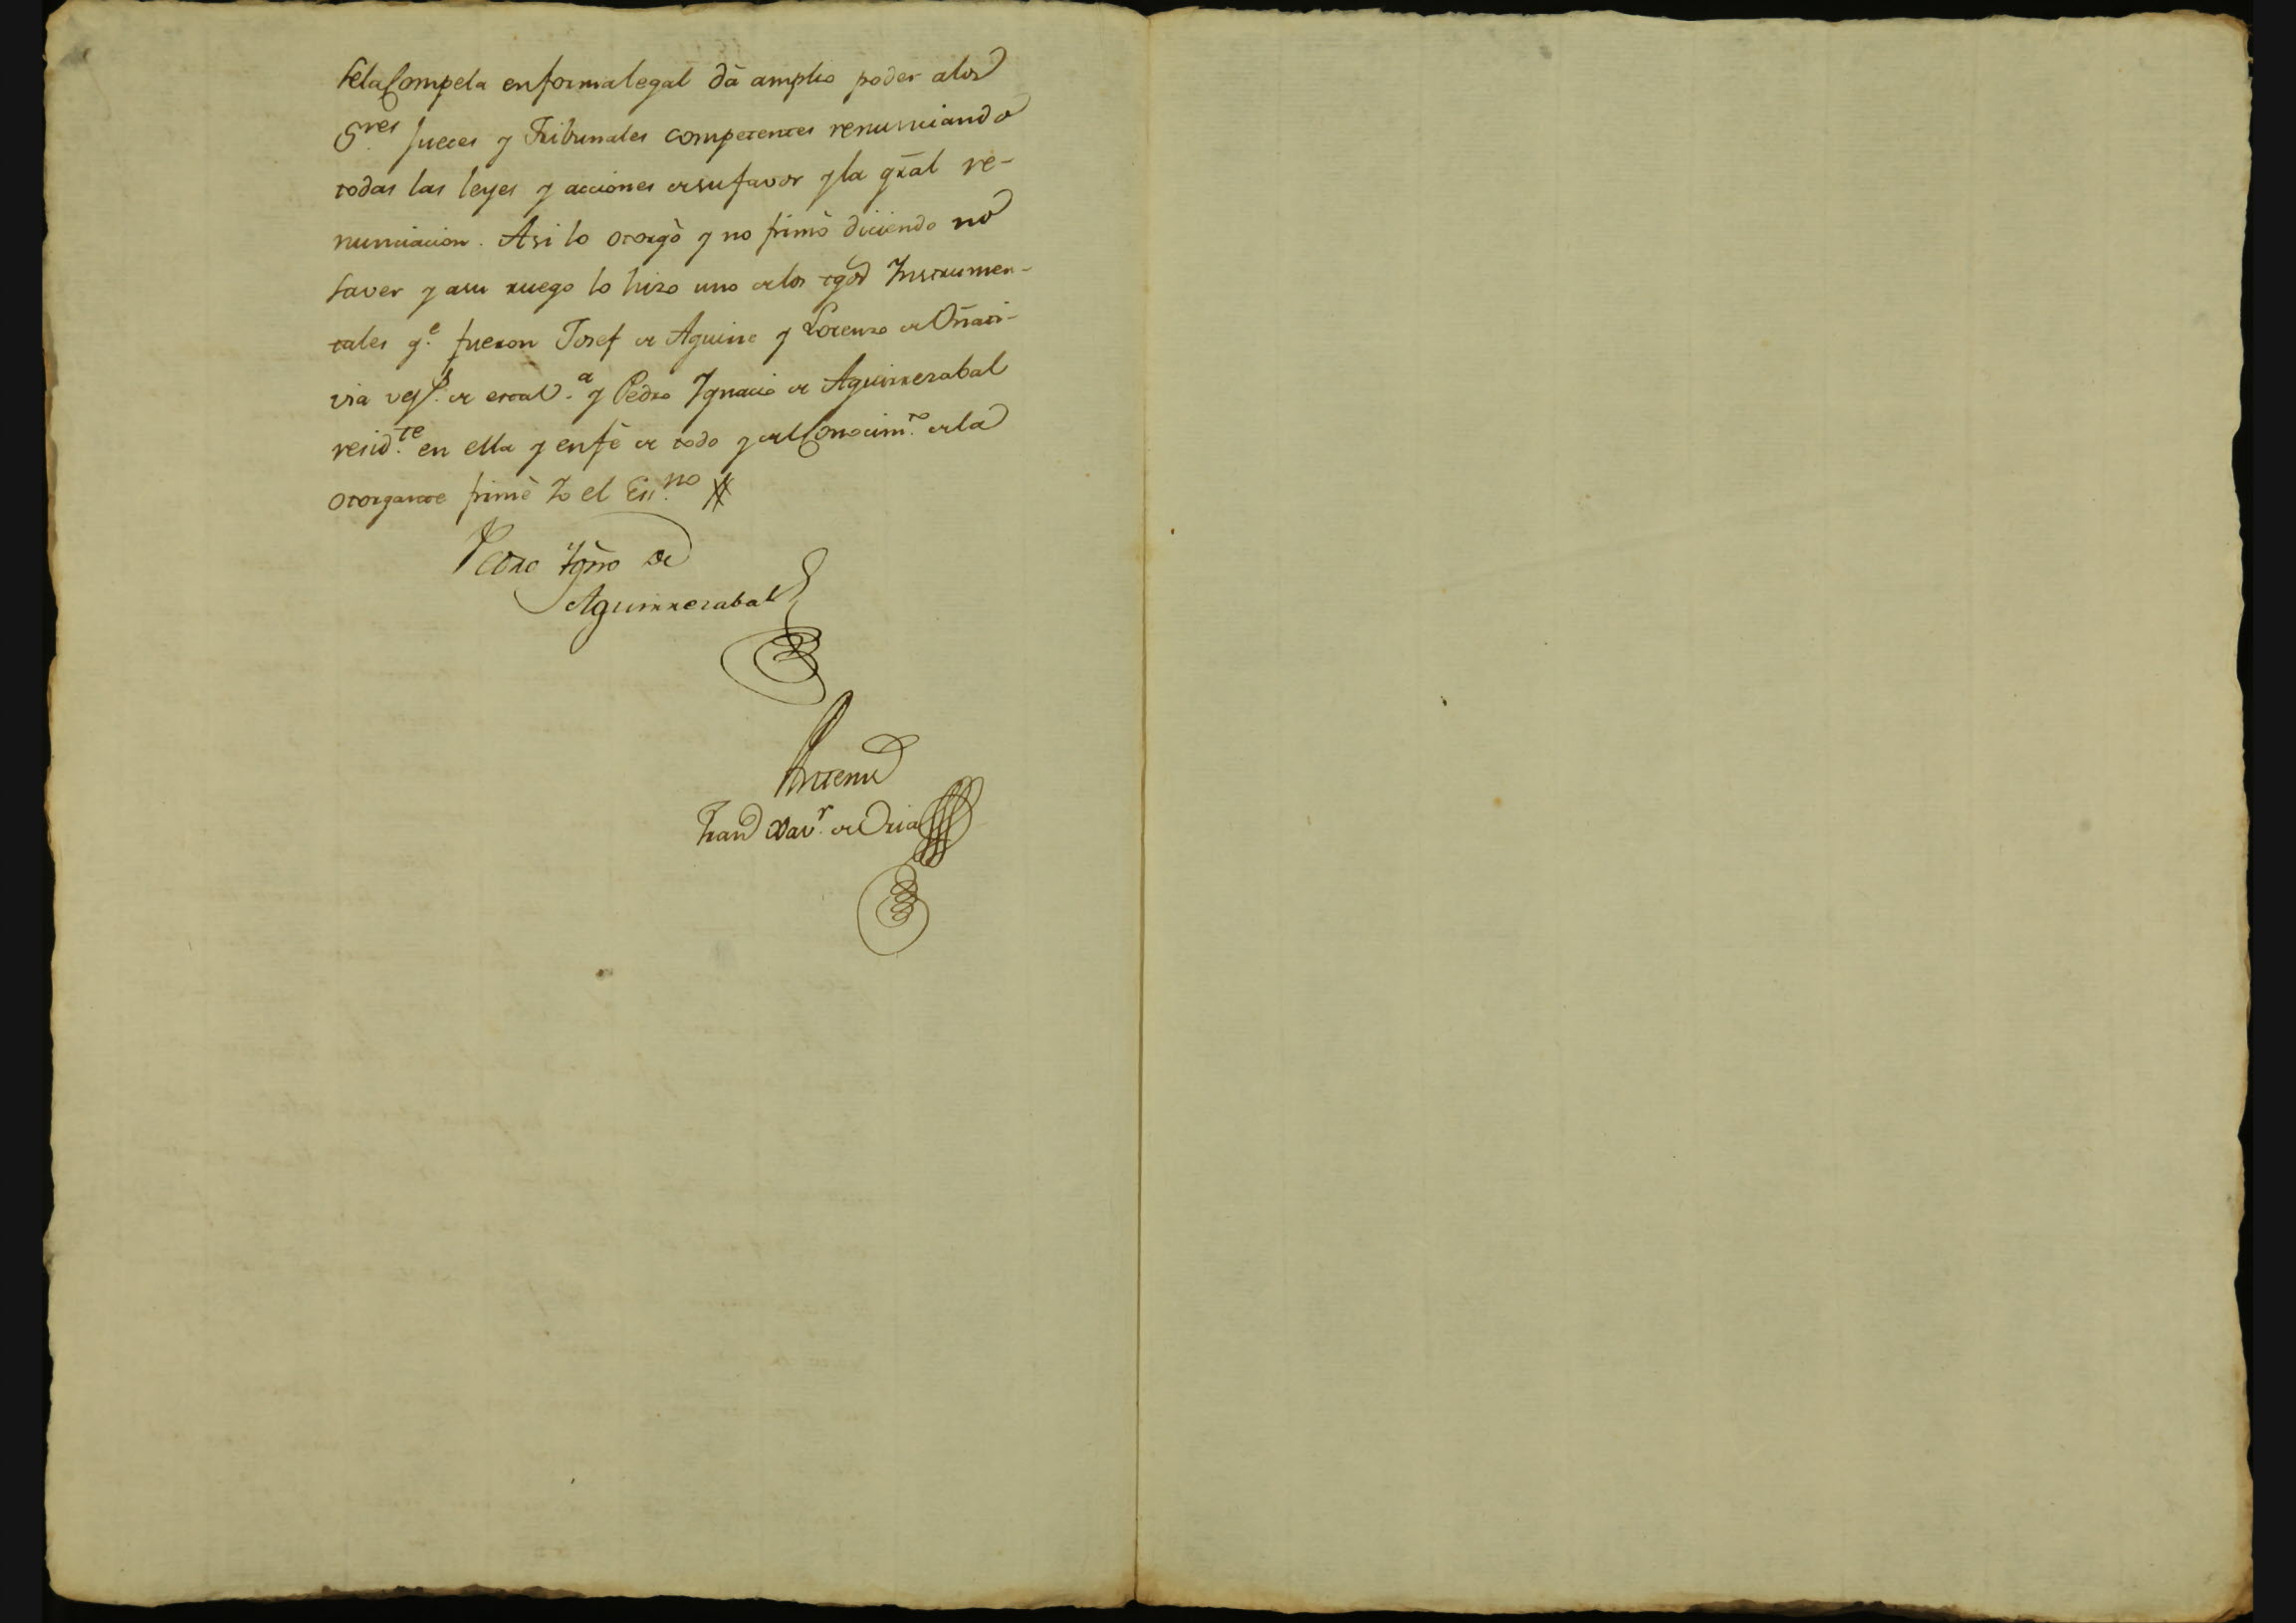 se la Compela en forma legal dà amplio poder alos
S.res Jueces y Tribunales competentes renunciando
todas las leyes y acciones de su favor y la gral re-
nunciacion. Asi lo otorgò y no firmò diciendo no
saver y asu ruego lo hizo uno de los tgos Instrumen-
tales q.e fueron Josef de Aguirre y Lorenzo de Oñati-
via vez.s de esta V.a y Pedro Ignacio de Aguirrezabal
resid.te en ella y en fè de todo y del Conocim.to de la
otorgante firmè Yo el Ess.no
Pedro Igno de
Aguirrezabal
Antemi
Franco Xav.r de Oria